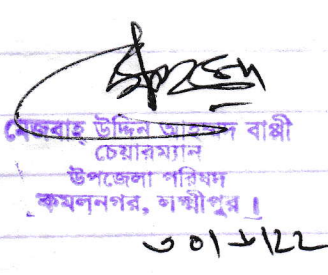 মেজবাহ্ উদ্দিন আহম্মদ বাপ্পী
চেয়ারম্যান
উপজেলা পরিষদ
কমলনগর, লক্ষ্মীপুর।